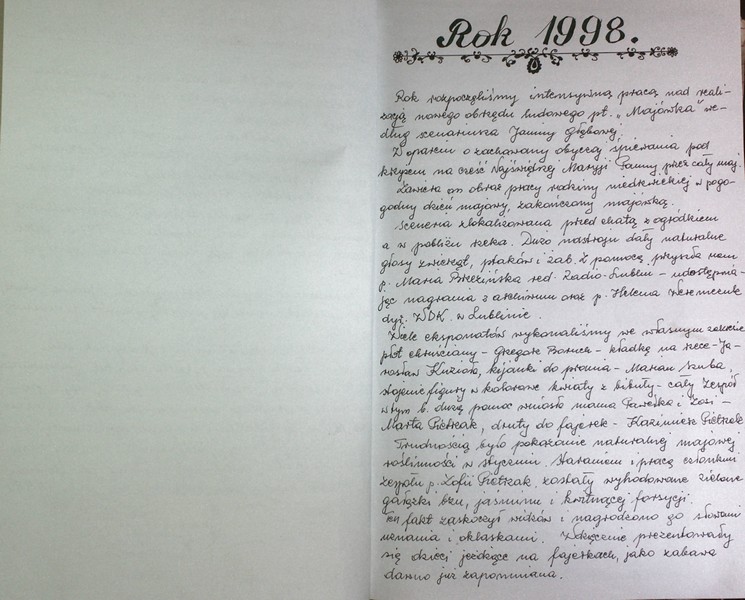 Rok 1998.
Rok rozpoczęliśmy intensywną pracą nad reali-
zacją nowego obrzędu ludowego pt. „Majówka" we-
dług scenariusza Janiny Głębowej.
W oparciu o zachowany obyczaj śpiewania pod
krzyżem na cześć Najświętszej Maryji Panny przez cały maj.
Zawiera on obraz pracy rodziny niedrzwickiej w pogo-
godny dzień majowy, zakończony majówką.
Sceneria zlokalizowana przed chatą z ogródkiem
a w pobliżu rzeka. Dużo nastroju dały naturalne
głosy zwierząt, ptaków i żab. Z pomocą przyszła nam
p. Maria Brzezińska red. Radio-Lublin - udostępnia-
jąc nagrania z archiwum oraz p. Helena Weremczuk
dyr. WDK w Lublinie.
Wiele eksponatów wykonaliśmy we własnym zakresie
płot chruściany - Grzegorz Boruch - kładkę na rzece - Ja-
rosław Kuzioła, kijanki do prania - Marian Szuba,
strojenie figury w kolorowe kwiaty z bibuły - cały Zespół
w tym b. dużą pomoc wniosła mama Pawełka i Zosi -
Marta Pietrzak, druty do fajerek - Kazimierz Pietrzak
Trudnością było pokazanie naturalnej majowej
roślinności w styczniu. Staraniem i pracą członkini
zespołu p. Zofii Pietrzak zostały wyhodowane zielone
gałązki bzu, jaśminu i kwitnącej forsycji.
Ten fakt zaskoczył widzów i nagrodzono go słowami
uznania i oklaskami. Wdzięcznie prezentowały
się dzieci jeżdżące na fajerkach, jako zabawa
dawno już zapomniana.